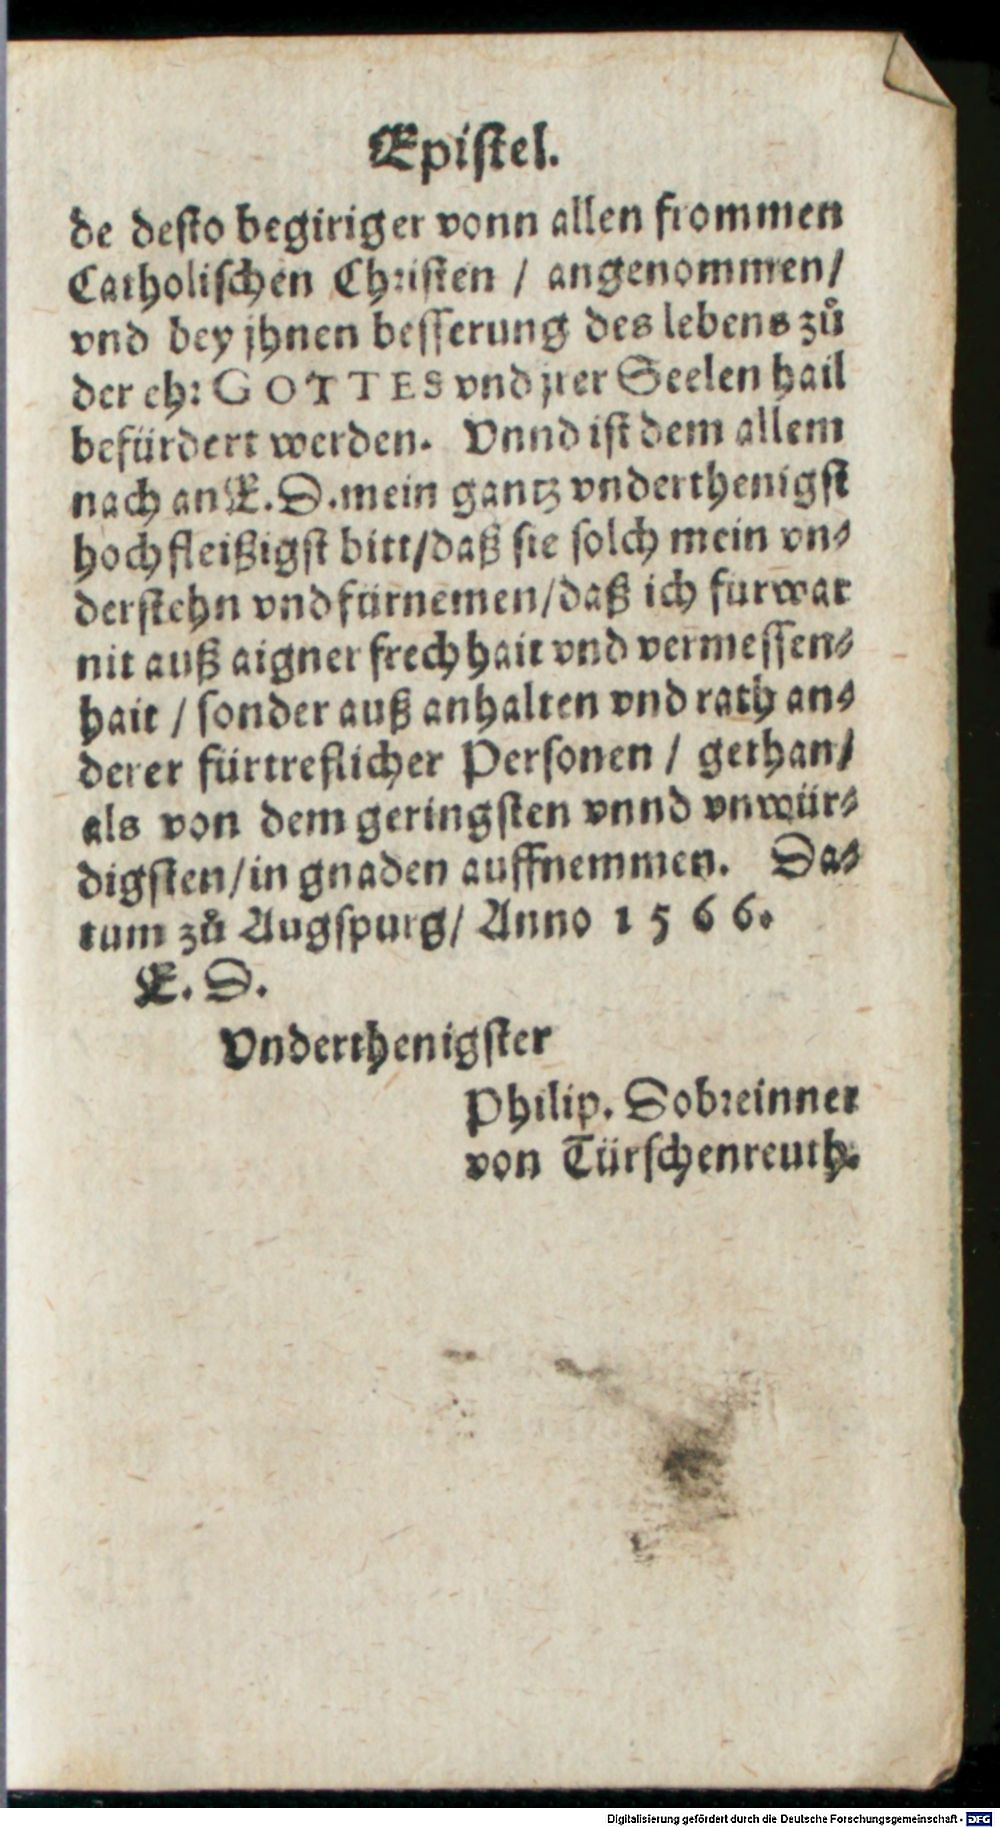 Epiſtel.
de deſto begiriger vonn allen frommen
Catholiſchen Chꝛiſten / angenommen/
vnd bey jhnen beſſerung des lebens zů
der ehꝛ GOTTES vnd jrer Seelen hail
befürdert werden. Vnnd iſt dem allem
nach an E. D. mein gantz vnderthenigſt
hochfleißigſt bitt/daß ſie ſolch mein vn⸗
derſtehn vnd fürnemen/daß ich furwar
nit auß aigner frechhait vnd vermeſſen⸗
hait / ſonder auß anhalten vnd rath an⸗
derer fürtreflicher Perſonen / gethan/
als von dem geringſten vnnd vnwür⸗
digſten/in gnaden auffnemmen. Da⸗
tum zů Augſpurg/ Anno 1566.
E. D.
Vnderthenigſter
Philip. Dobꝛeinner
von Türſchenreuth.
Digitalisierung gefördert durch die Deutsche Forschungsgemeinschaft - DFG